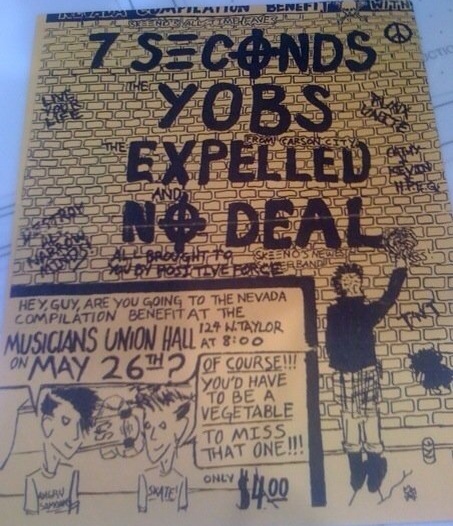 NEVADA COMPILATION BENEFIT WITH
SKEENO'S ALL TIME FAVES
7 SECONDS
THE YOBS
FROM CARSON CITY
THE EXPELLED
AND
NO DEAL
SKEENO'S NEWEST
ALL BROUGHT TO
YOU BY POSITIVE FORCE
LIVE
YOUR
LIFE
BLACK
UNITE
CATHY
KEVIN
DESTROY
NARROW
MINDS
TNT
HEY, GUY, ARE YOU GOING TO THE NEVADA
COMPILATION BENEFIT AT THE
MUSICIANS UNION HALL 124 W. TAYLOR
AT 8:00
ON MAY 26TH?
OF COURSE!!!
YOU'D HAVE
TO BE A
VEGETABLE
TO MISS
THAT ONE!!!
SKATE!
ONLY $4.00